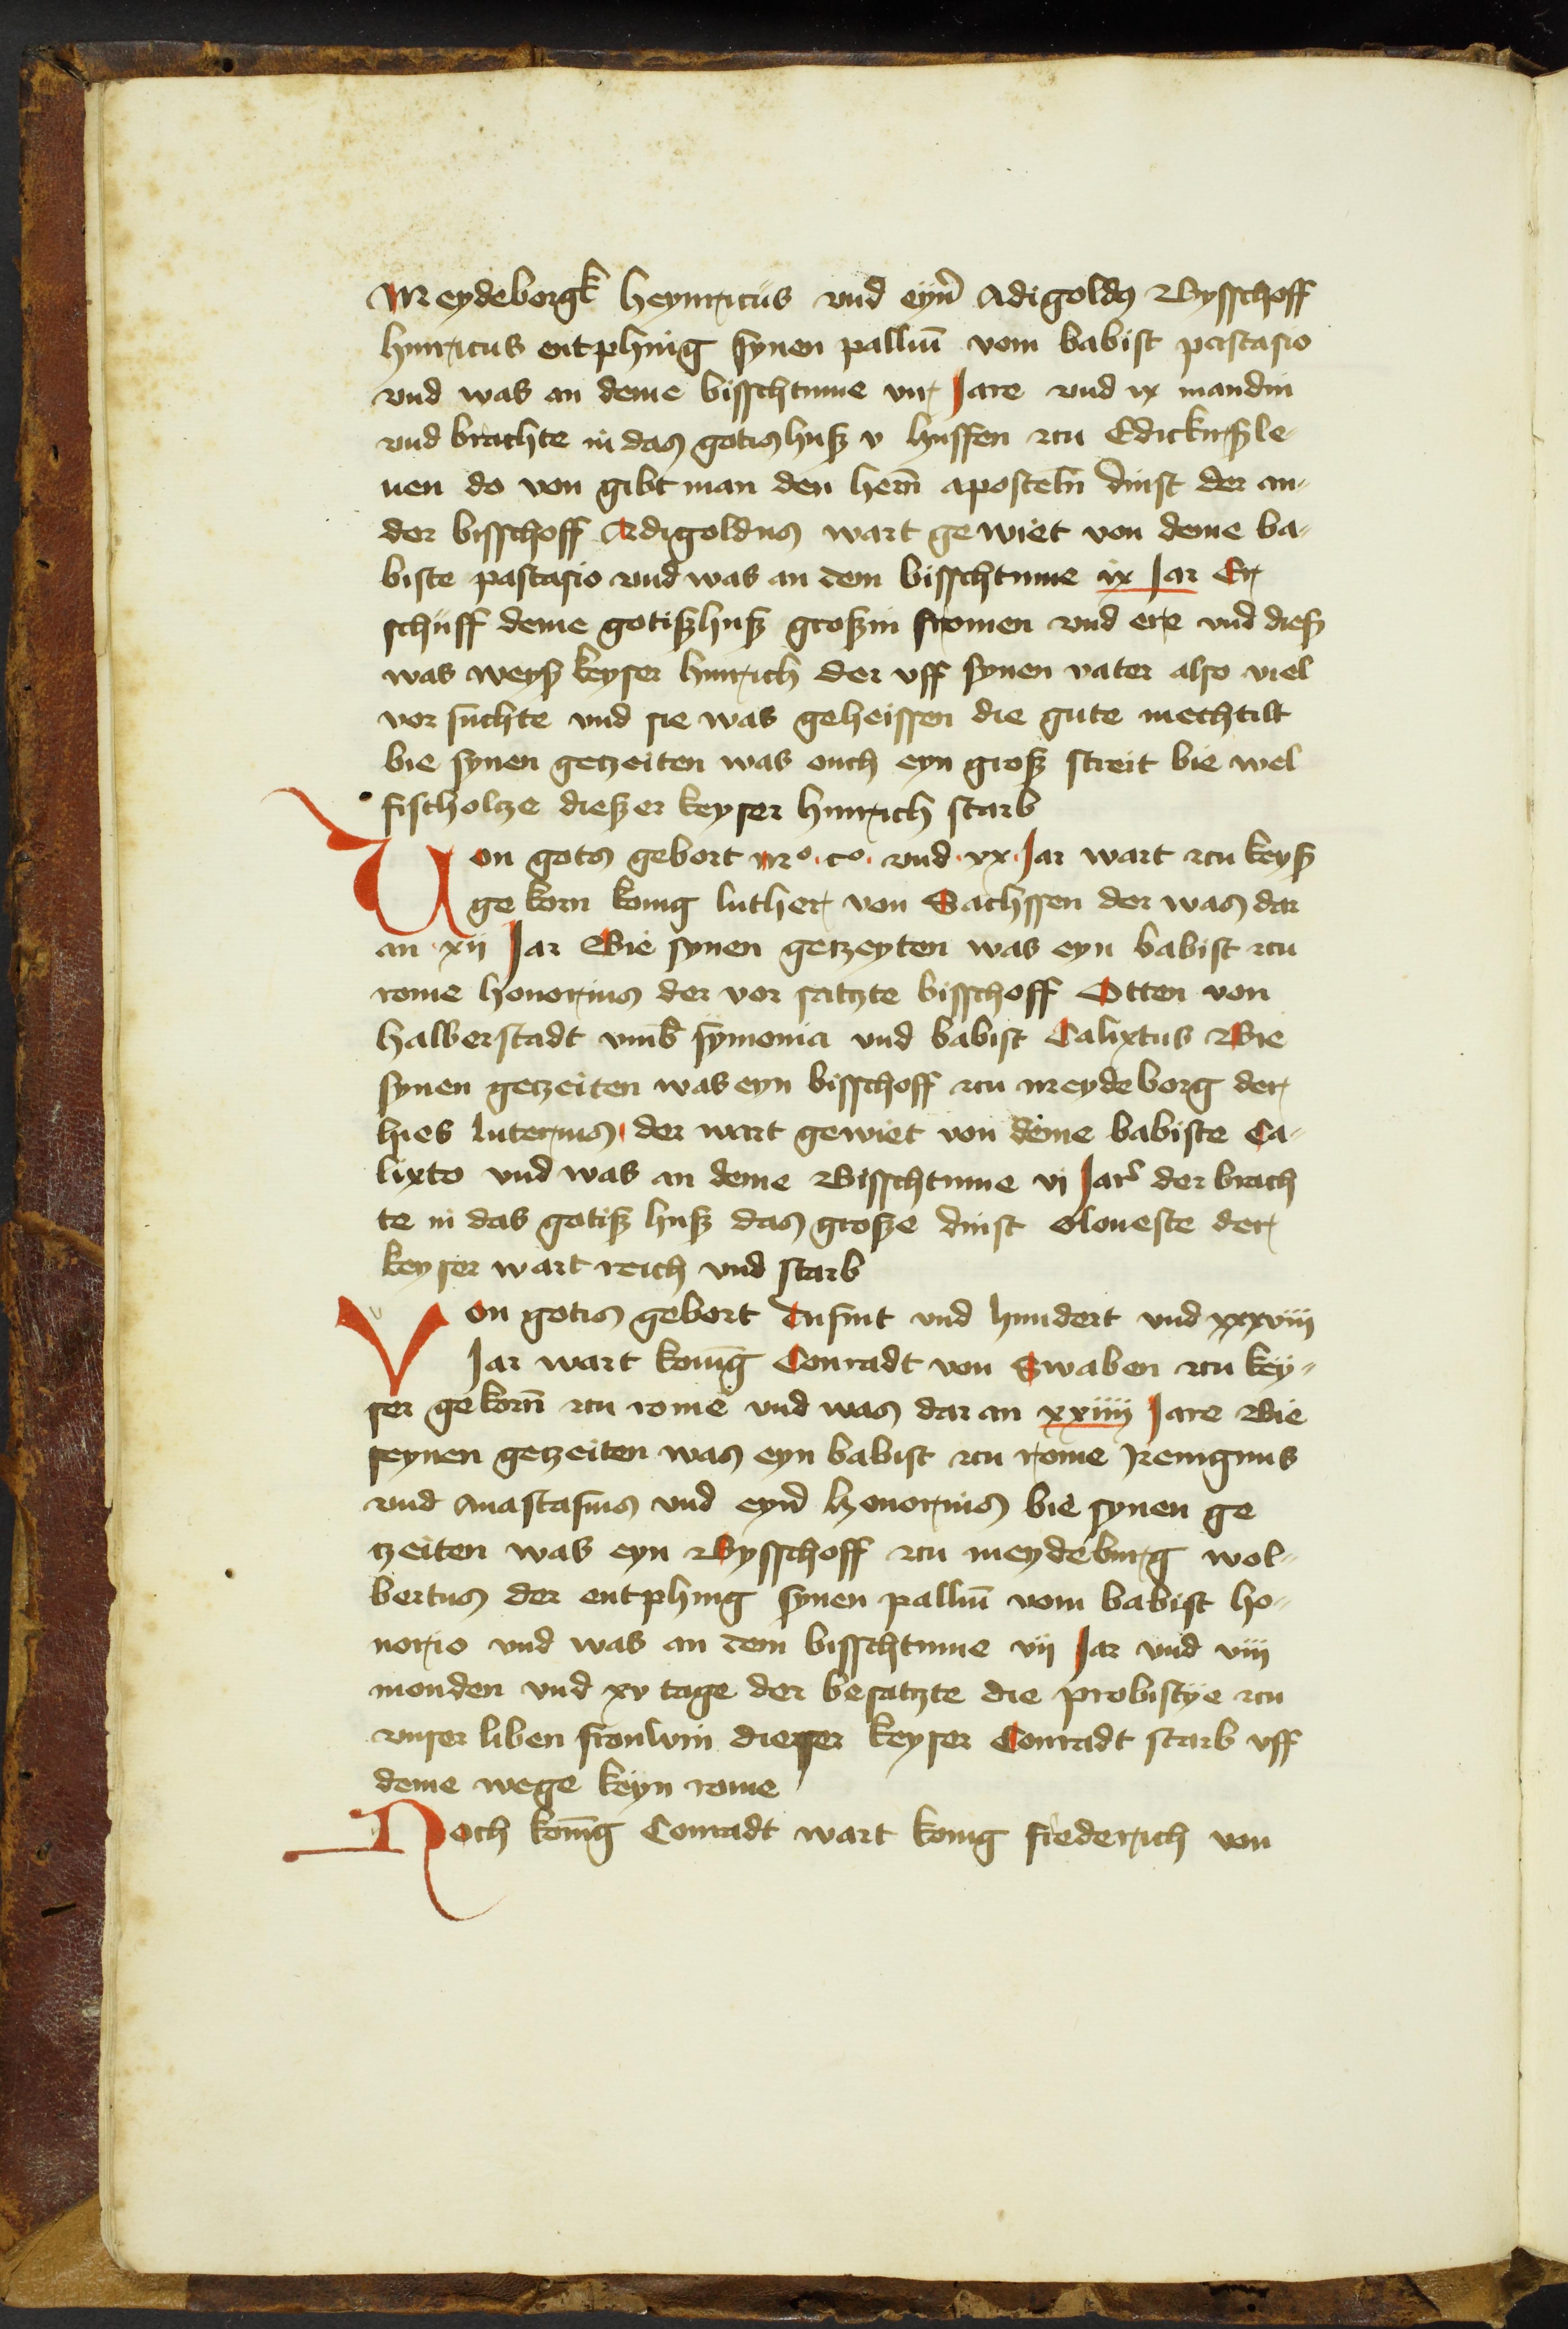 Meydeborgk heynricus vnd eyn̄ Adigoldꝰ Bysschoff
hinricus entphing synen palliū vom babist pastasio
vnd was an deme bisschtume vir Jare vnd ix mandin
vnd brachte in das gotishuß v huffen zcu Edickirßle-
uen do von gibt man den hern̄ aposteln̄ dinst der an-
der bisschoff Adigoldus wart gewiet von deme ba-
biste pastasio vnd was an dem bisschtume ix Jar Er
schuff deme gotißhuß großin fromen vnd ere vnd dieß
was weyß keyser hinrich der vff synen vater also viel
vor suchte vnd sie was geheissen die gute mechtilt
bie synen getzeiten was ouch eyn groß streit bie wel
fischoltze dießer keyser hinrich starb
Uon gots gebort mº cº vnd xx Jar wart zcu keyß
ge korn konig luther von Sachssen der was dar
an xij Jar Bie synen getzeyten was eyn babist zcu
rome honorius der vor satzte bisschoff Otten von
halberstadt vmb symonia vnd babist Calixtus Bie
synen getzeiten was eyn bisschoff zcu meydeborg der
hies luterius der wart gewiet von deme babiste Ca-
lixto vnd was an deme Bisschtume vi Jar der brach
te in das gotiß huß das große dinst oloueste der
keyser wart reich vnd starb
Von gotis gebort Tusint vnd hundert vnd xxxviij
Jar wart konig Conradt von Swaben zcu key-
ser gekorn̄ zcu rome vnd was dar an xxiiij Jare Bie
seynen getzeiten was eyn babist zcu rome Jrenignus
vnd Anastasius vnd eyn̄ honorius bie synen ge
tzeiten was eyn Bysschoff zcu meydeburg wol-
bertus der entphing synen palliū vom babist ho-
norio vnd was an dem bisschtume vij Jar vnd viij
monden vnd xv tage der besatzte die probistye zcu
vnser liben frouwin dieser keyser Conradt starb vff
deme wege keyn rome
Noch konig Conradt wart konig friederich von